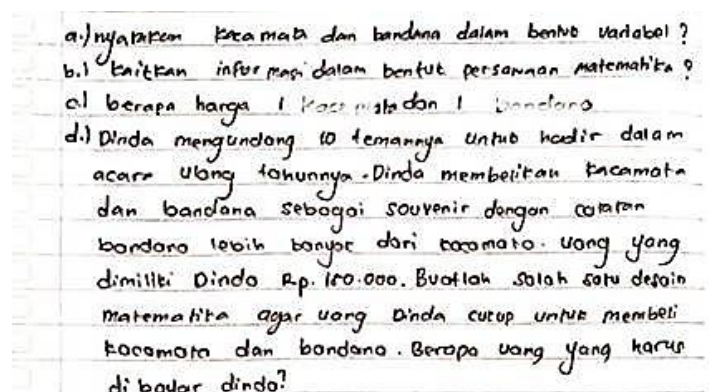 a.) nyatakan kacamata dan bandana dalam bentuk variabel?
b.) kaitkan informasi dalam bentuk persamaan matematika?
c) berapa harga 1 kacamata dan 1 bandana
d.) Dinda mengundang 10 temannya untuk hadir dalam
acara ulang tahunnya. Dinda memberikan kacamata
dan bandana sebagai souvenir dengan catatan
bandana lebih banyak dari kacamata. uang yang
dimiliki Dinda Rp. 150.000. Buatlah salah satu desain
matematika agar uang Dinda cukup untuk membeli
kacamata dan bandana. Berapa uang yang harus
di bayar dinda?